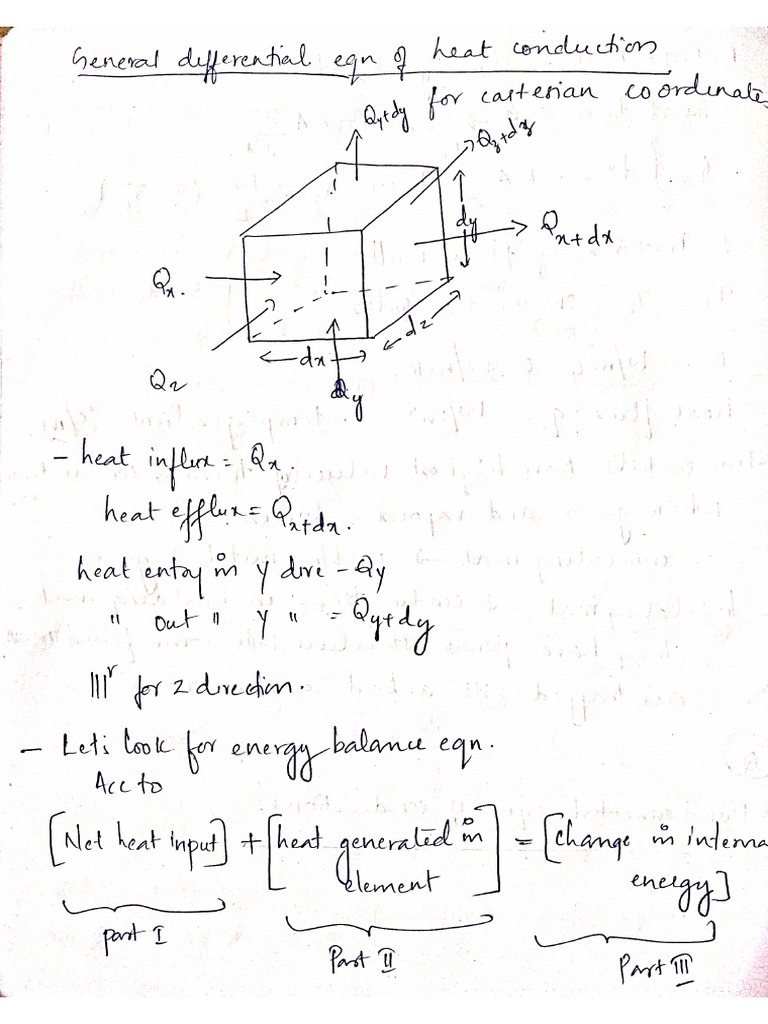 General differential eqn of heat conduction
for cartesian coordinates
Qy+dy
Qz+dz
dy
Qx+dx
Qx.
dz
dx
Qz
Qy
- heat influx = Qx.
heat efflux = Qx+dx.
heat entry in y dire - Qy
" out " y " = Qy+dy
IIIr for z direction.
- Let's look for energy balance eqn.
Acc to
[Net heat input] + [heat generated in element] = [change in interna
energy]
part I
Part II
Part III